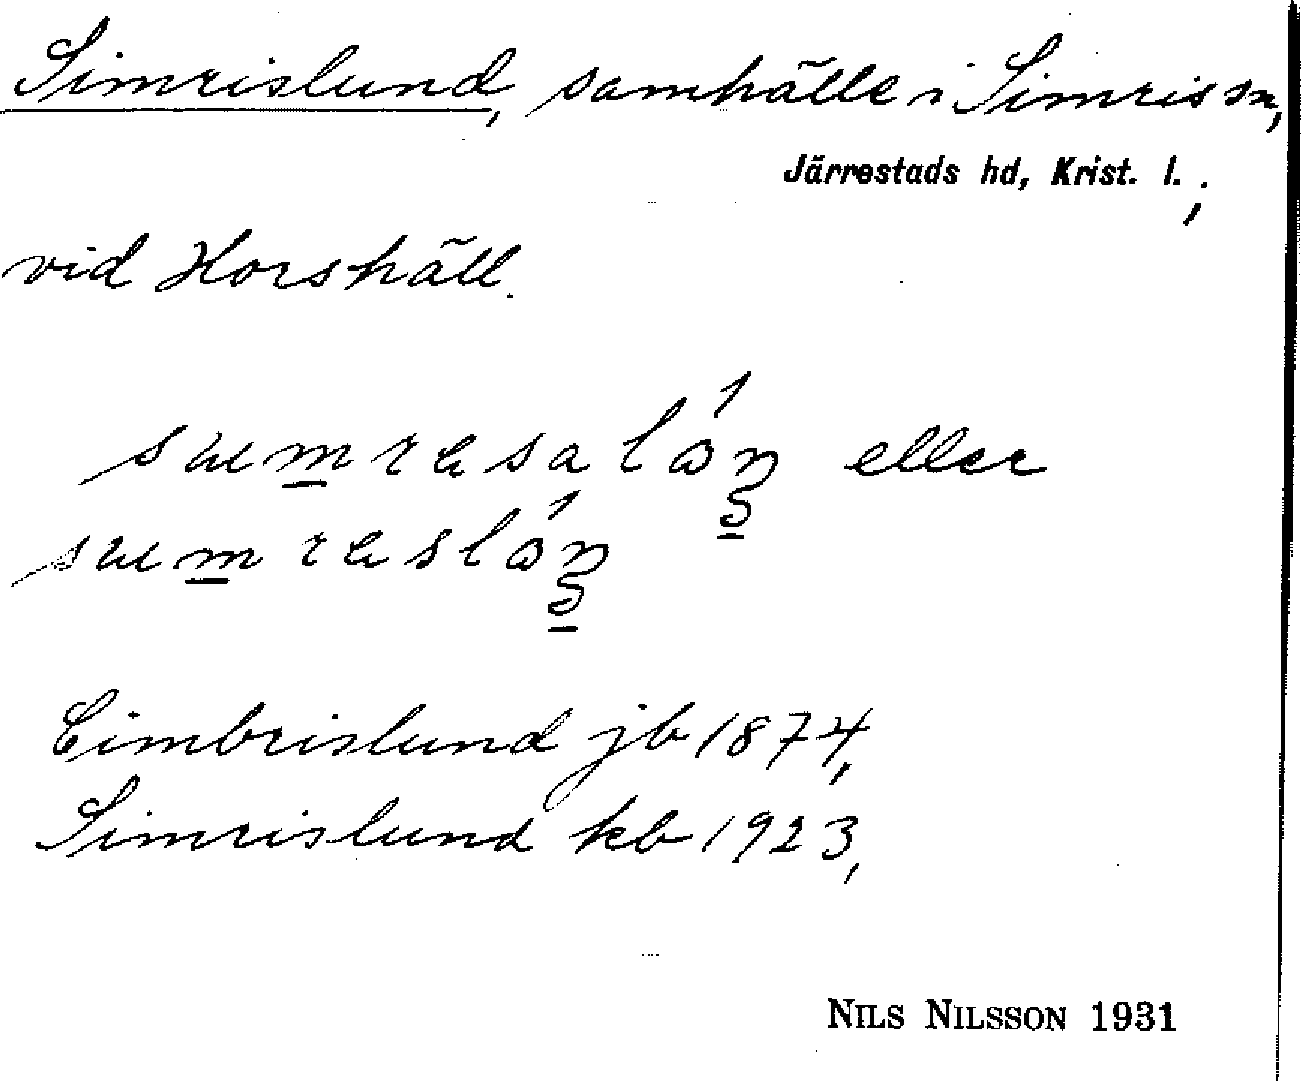 Simrislund, samhälle i Simris sn,
Järrestads hd, Krist. l.;
vid Horshäll.
eller
Cimbrislund jb 1874,
Simrislund kb 1923,
NILS NILSSON 1931